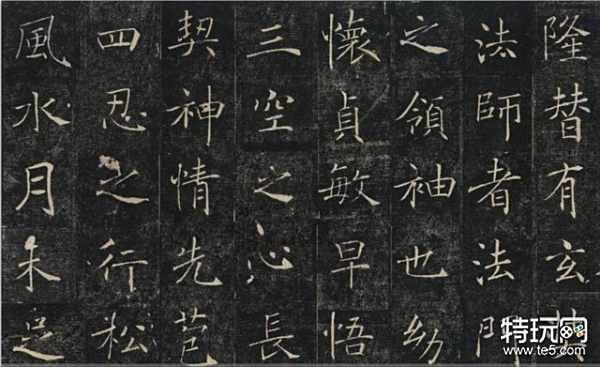 隆替有玄
法師者法門
之領袖也幼
懷貞敏早悟
三空之心長
契神情先苞
四忍之行松
風水月未足
特玩网
www.te5.com